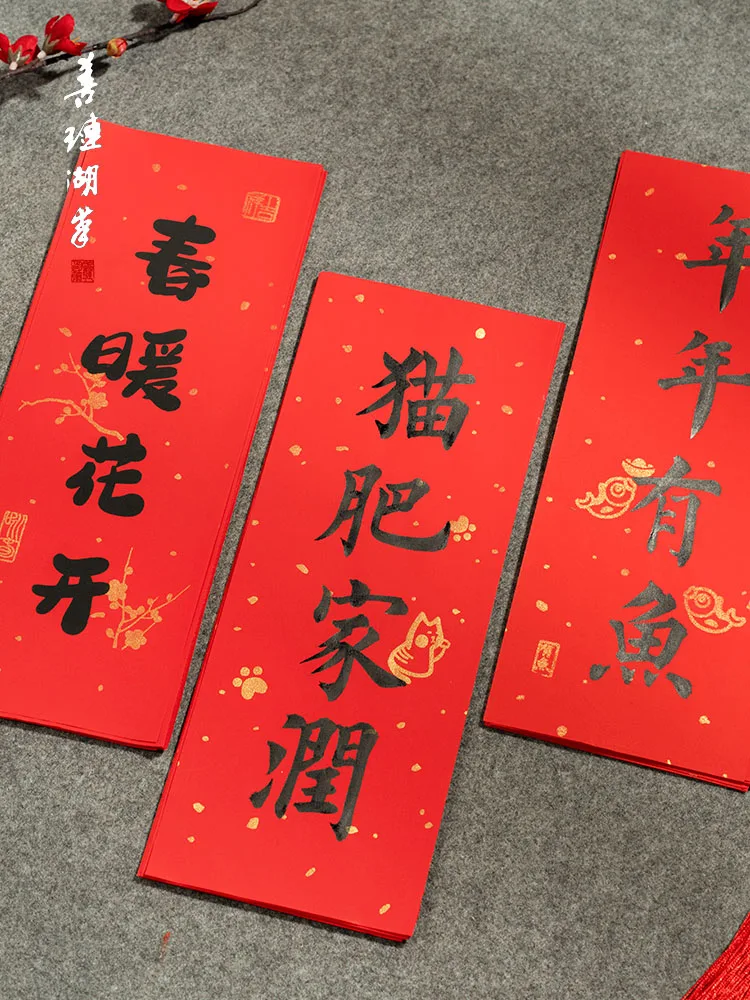 善琏湖笔
春暖花开
猫肥家潤
年年有魚